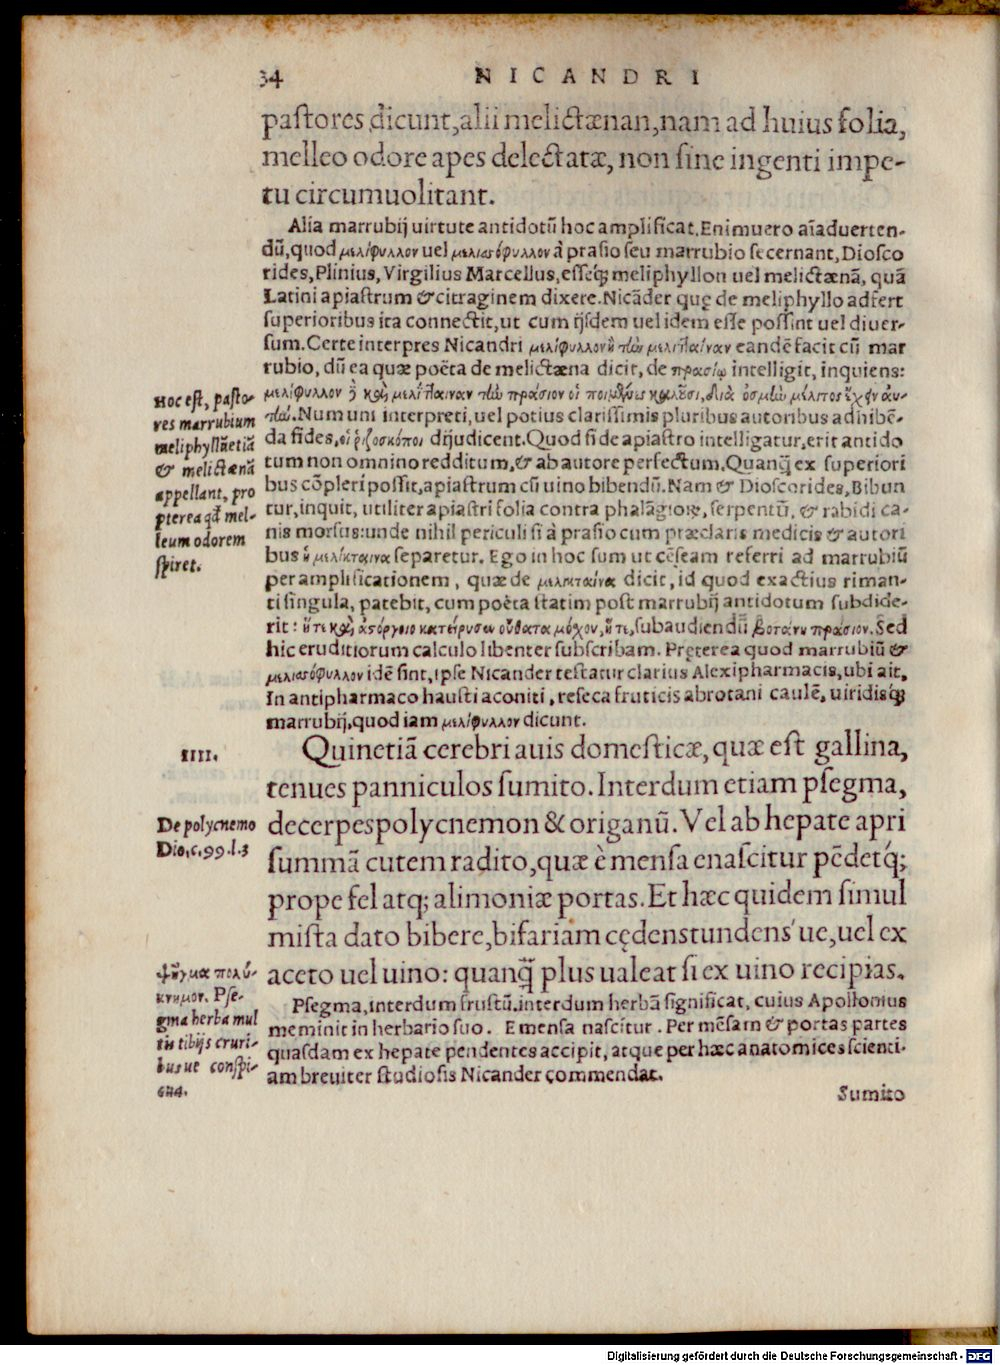 34 NICANDRI
pastores dicunt, alii melictænan, nam ad huius folia,
melleo odore apes delectatæ, non sine ingenti impe-
tu circumuolitant.
Alia marrubij uirtute antidotū hoc amplificat. Enimuero aīaduerten-
dū, quod μελίφυλλον uel μελισσόφυλλον à prasio seu marrubio secernant, Diosco
rides, Plinius, Virgilius Marcellus, esseq; meliphyllon uel melictænā, quā
Latini apiastrum & citraginem dixere. Nicāder quę de meliphyllo adfert
superioribus ita connectit, ut cum ijsdem uel idem esse possint uel diuer-
sum. Certe interpres Nicandri μελίφυλλον ἢ τὴν μελίταιναν eandē facit cū mar
rubio, dū ea quæ poëta de melictæna dicit, de πρασίῳ intelligit, inquiens:
μελίφυλλον ἢ καὶ μελίταιναν τὴν πράσιον οἱ ποιμένες καλοῦσι, διὰ ὀσμὴν μέλιτος ἔχειν αὐ-
τήν. Num uni interpreti, uel potius clarissimis pluribus autoribus adhibē-
da fides, οἱ ῥιζοσκόποι dijudicent. Quod si de apiastro intelligatur, erit antido
tum non omnino redditum, & ab autore perfectum. Quanq̃ ex superiori
bus cōpleri possit, apiastrum cū uino bibendū. Nam & Dioscorides, Bibun
tur, inquit, utiliter apiastri folia contra phalāgiorum, serpentū, & rabidi ca-
nis morsus: unde nihil periculi si à prasio cum præclaris medicis & autori
bus ἡ μελίκταινα separetur. Ego in hoc sum ut cēseam referri ad marrubiū
per amplificationem, quæ de μελικταίνα dicit, id quod exactius riman-
ti singula, patebit, cum poëta statim post marrubij antidotum subdide-
rit: ἥτε καὶ ἀστόργοιο κατείρυσεν οὔθατα μόχου, ἥτε, subaudiendū βοτάνη πράσιον. Sed
hic eruditiorum calculo libenter subscribam. Pręterea quod marrubiū &
μελισσόφυλλον idē sint, ipse Nicander testatur clarius Alexipharmacis, ubi ait,
In antipharmaco hausti aconiti, reseca fruticis abrotani caulē, uiridisq;
marrubij, quod iam μελίφυλλον dicunt.
Hoc est, pasto-
res marrubium
meliphyllū etiā
& melictænā
appellant, pro
pterea qđ mel-
leum odorem
spiret.
IIII.
Quinetiā cerebri auis domesticæ, quæ est gallina,
tenues panniculos sumito. Interdum etiam psegma,
decerpes polycnemon & origanū. Vel ab hepate apri
summā cutem radito, quæ è mensa enascitur pēdetq́;
prope fel atq; alimoniæ portas. Et hæc quidem simul
mista dato bibere, bifariam cędens tundens´ue, uel ex
aceto uel uino: quanq̃ plus ualeat si ex uino recipias.
De polycnemo
Dio. c. 99. l. 3
Psegma, interdum frustū. interdum herbā significat, cuius Apollonius
meminit in herbario suo. E mensa nascitur. Per mēsam & portas partes
quasdam ex hepate pendentes accipit, atque per hæc anatomices scienti-
am breuiter studiosis Nicander commendat.
ψῆγμα πολύ-
κνημον. Pse-
gma herba mul
tis tibijs cruri-
bus ue conspi-
cua.
Sumito
Digitalisierung gefördert durch die Deutsche Forschungsgemeinschaft - DFG